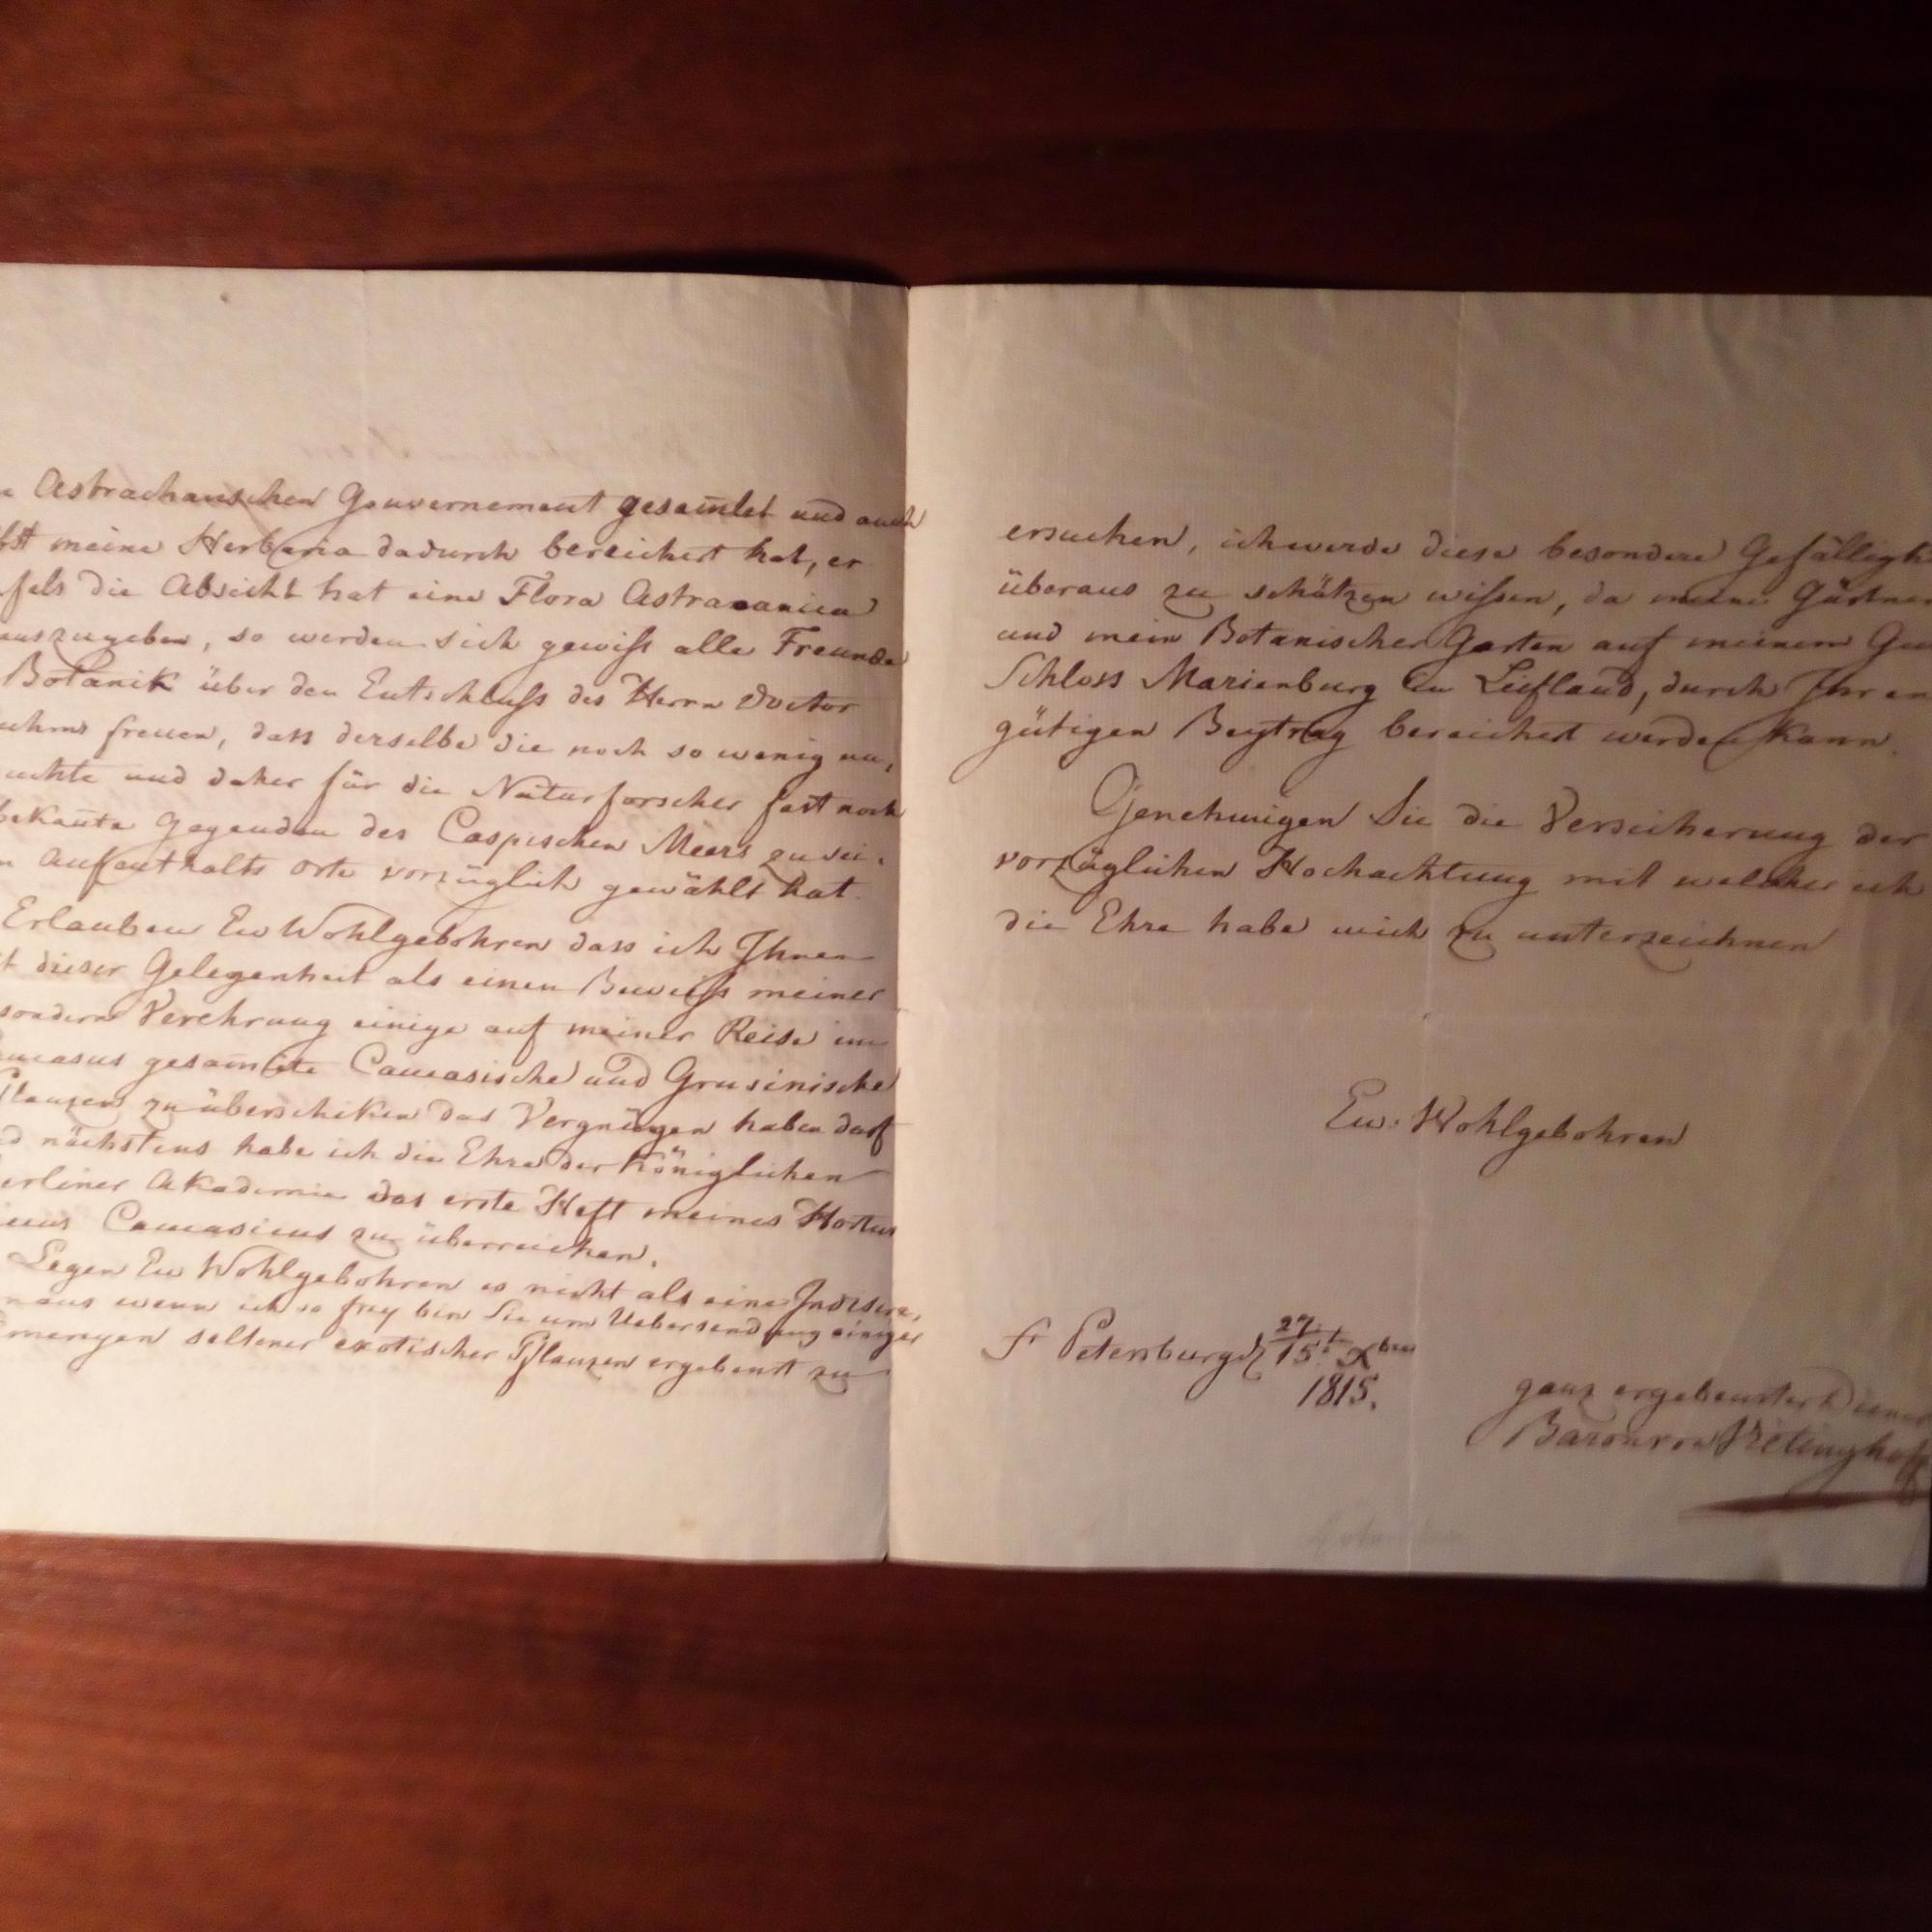 Astrachanschen Gouvernement gesam̄let und auch
meine Herbaria dadurch bereichert hat, er
die Absicht hat eine Flora Astracanica
auszugeben, so werden sich gewiſs alle Freunde
Botanik über den Entschluſs des Herrn Doctor
freuen, dass derselbe die noch so wenig un,
und daher für die Naturforscher fast noch
bekan̄te Gegenden des Caspischen Meers zu sei,
Aufenthalts Orte vorzüglich gewählt hat.
Erlauben Ew Wohlgebohren dass ich Ihnen
dieser Gelegenheit als einen Beweiſs meiner
sondern Verehrung einige auf meiner Reise im
gesam̄lete Caucasische und Grusinische
Pflanzen zu überschiken das Vergnügen haben darf
nächstens habe ich die Ehre der Königlichen
Berliner Akademie das erste Heft meines Hortus
Caucasicus zu überreichen.
Legen Ew Wohlgebohren es nicht als eine Indiscre,
aus wenn ich so frey bin Sie um Uebersendung einiger
seltener exotischer Pflanzen ergebenst zu
ersuchen, ich werde diese besondere Gefälligk
überaus zu schätzen wiſsen, da meine Gärtner
und mein Botanischer Garten auf meinem Gu
Schloss Marienburg in Liefland, durch Ihren
gütigen Beytrag bereichert werden kann.
Genehmigen Sie die Versicherung der
vorzüglichen Hochachtung mit welcher ich
die Ehre habe mich zu unterzeichnen
Ew: Wohlgebohren
St Petersburg d 27/15t Xber
1815.
ganz ergebenster Diener
Baron von Vietinghoff